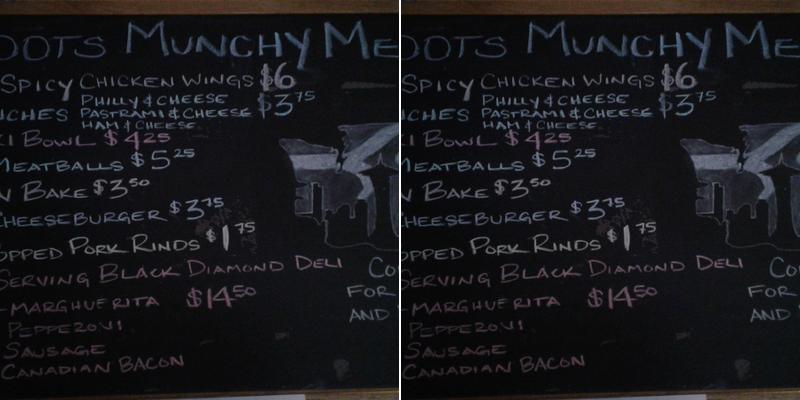 OOTS MUNCHY ME
SPICY CHICKEN WINGS $6
PHILLY & CHEESE
NCHES PASTRAMI & CHEESE $3.75
HAM & CHEESE
I BOWL $4.25
MEATBALLS $5.25
BAKE $3.50
CHEESEBURGER $3.75
OPPED PORK RINDS $1.75
SERVING BLACK DIAMOND DELI
CO
FOR
MARGHUERITA $14.50
AND
PEPPEZOVI
SAUSAGE
CANADIAN BACON
OOTS MUNCHY ME
SPICY CHICKEN WINGS $6
PHILLY & CHEESE
NCHES PASTRAMI & CHEESE $3.75
HAM & CHEESE
I BOWL $4.25
MEATBALLS $5.25
BAKE $3.50
CHEESEBURGER $3.75
OPPED PORK RINDS $1.75
SERVING BLACK DIAMOND DELI
CO
FOR
MARGHUERITA $14.50
AND
PEPPEZOVI
SAUSAGE
CANADIAN BACON